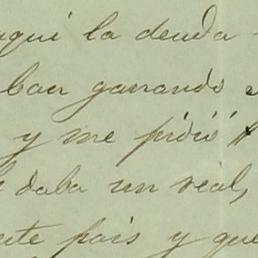 aqui la deuda
ban ganando
y me pidió
daba un real,
este pais y que